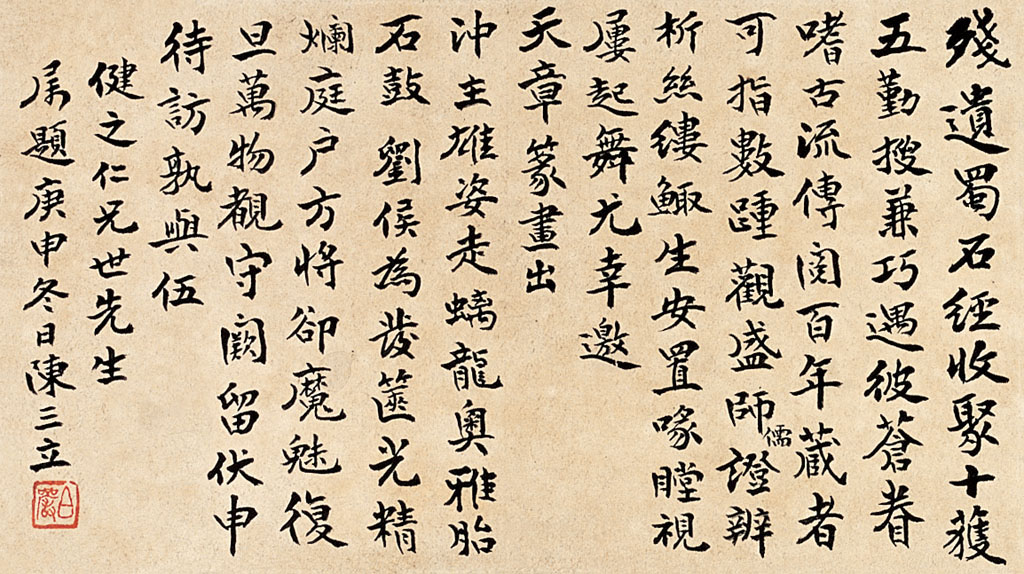 殘遺蜀石經收聚十獲
五勤搜兼巧遇彼蒼眷
嗜古流傳閱百年藏者
可指數踵觀盛師儒證辨
析絲縷鯫生安置喙瞠視
屢起舞尤幸邀
天章篆畫出
沖主雄姿走螭龍奧雅胎
石鼓劉侯為發篋光精
爛庭户方將卻魔魅復
旦萬物覩守闕留伏申
待訪孰與伍
健之仁兄世先生
屬題庚申冬日陳三立